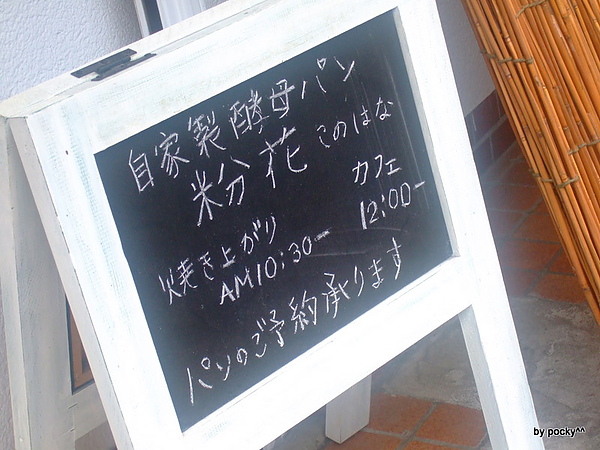 自家製酵母パン
粉花 このはな
カフェ
12:00-
焼き上がり
AM10:30-
パンのご予約承ります
by pocky^^